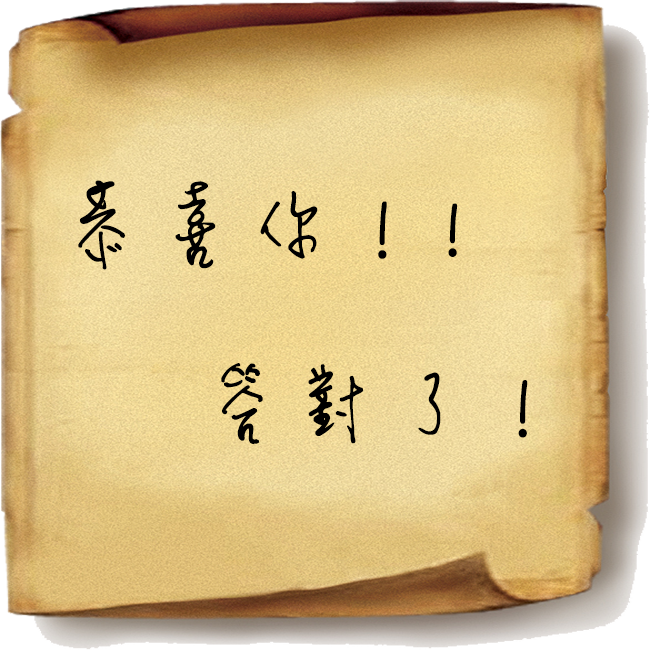 恭喜你！！
答對了！